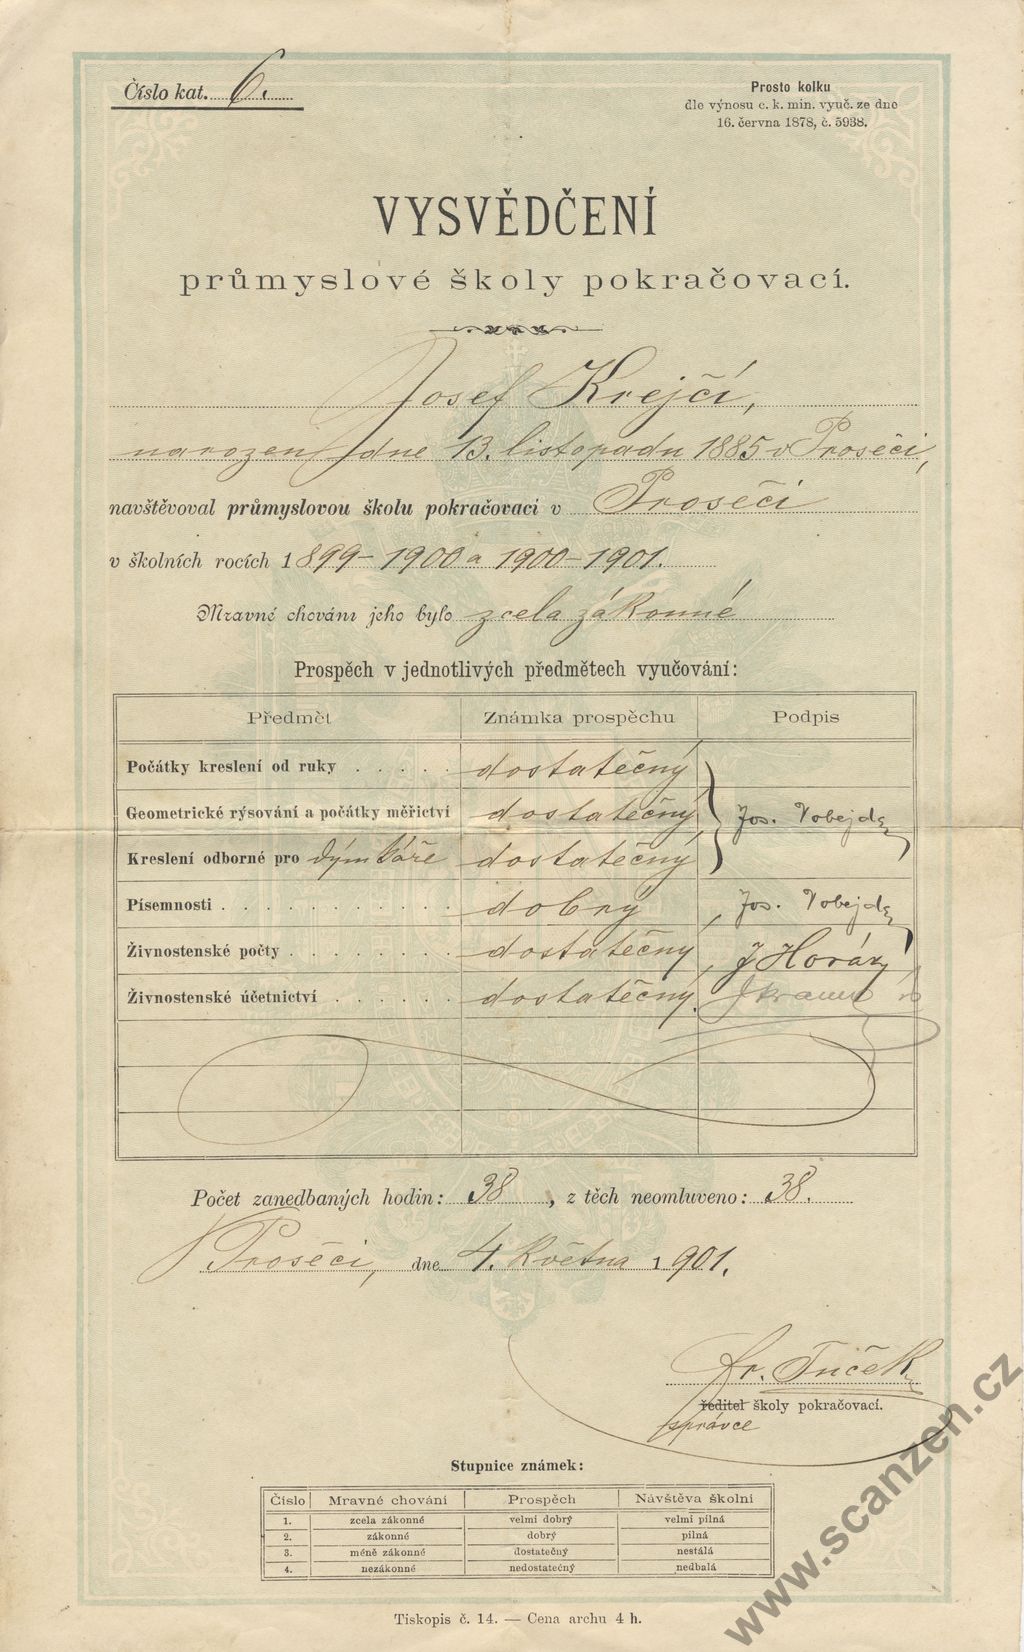 Číslo kat. 6.
Prosto kolku
dle výnosu c. k. min. vyuč. ze dne
16. června 1878, č. 5938.
VYSVĚDČENÍ
průmyslové školy pokračovací.
Josef Krejčí,
narozený dne 13. listopadu 1885 v Proseči,
navštěvoval průmyslovou školu pokračovací v Proseči
v školních rocích 1899-1900 a 1900-1901.
Mravné chování jeho bylo zcela zákonné
Prospěch v jednotlivých předmětech vyučování:
Předmět Známka prospěchu Podpis
Počátky kreslení od ruky . . . . . dostatečný
Geometrické rýsování a počátky měřictví dostatečný, Jos. Tobejda
Kreslení odborné pro dýmkáře dostatečný
Písemnosti . . . . . . . . . . . dobrý, Jos. Tobejda
Živnostenské počty . . . . . . . . dostatečný, J Horáz
Živnostenské účetnictví . . . . . . dostatečný.
Počet zanedbaných hodin: 38, z těch neomluveno: 38.
V Proseči, dne 4. května 1901.
Fr. Tuček
ředitel školy pokračovací.
správce
Stupnice známek:
Číslo Mravné chování Prospěch Návštěva školní
1. zcela zákonné velmi dobrý velmi pilná
2. zákonné dobrý pilná
3. méně zákonné dostatečný nestálá
4. nezákonné nedostatečný nedbalá
Tiskopis č. 14. — Cena archu 4 h.
www.scanzen.cz